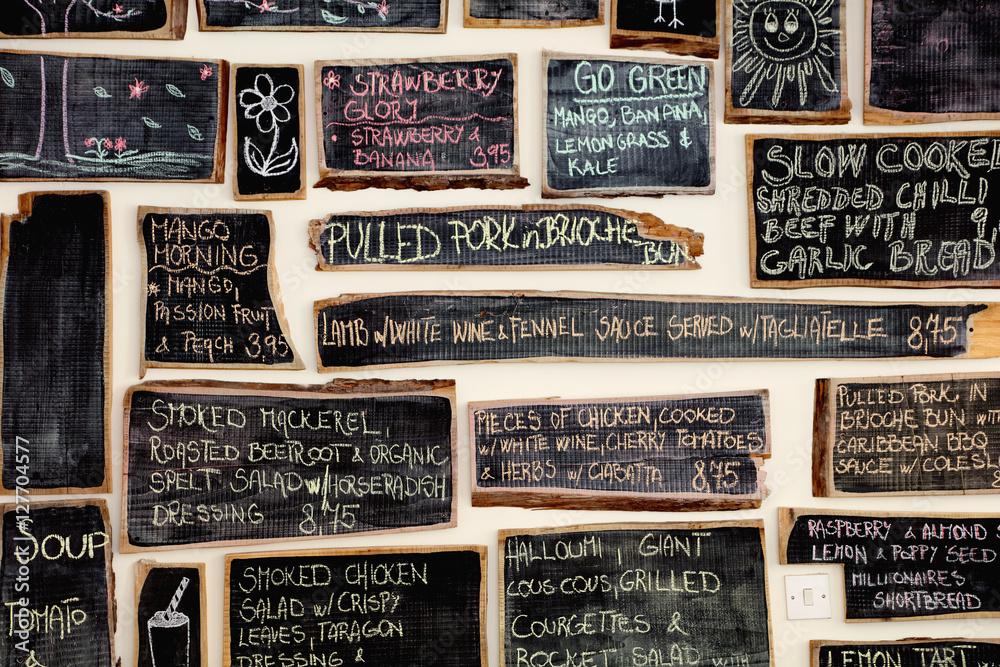 STRAWBERRY
GLORY
STRAWBERRY &
BANANA 3,95
GO GREEN
MANGO, BANANA,
LEMONGRASS &
KALE
SLOW COOKED
SHREDDED CHILLI
BEEF WITH 9,
GARLIC BREAD
MANGO
MORNING
MANGO,
PASSION FRUIT
& PEACH 3,95
PULLED PORK in BRIOCHE
BUN
LAMB w/WHITE WINE & FENNEL SAUCE SERVED w/TAGLIATELLE 8,75
SMOKED MACKEREL,
ROASTED BEETROOT & ORGANIC
SPELT SALAD w/HORSERADISH
DRESSING 8,75
PIECES OF CHICKEN, COOKED
w/WHITE WINE, CHERRY TOMATOES
& HERBS w/ CIABATTA 8,75
PULLED PORK IN
BRIOCHE BUN WITH
CARIBBEAN BBQ
SAUCE w/ COLESL
SOUP
TOMATO
SMOKED CHICKEN
SALAD w/ CRISPY
LEAVES, TARAGON
DRESSING &
HALLOUMI, GIANT
COUS COUS, GRILLED
COURGETTES &
ROCKET SALAD WITH
RASPBERRY & ALMOND S
LEMON & POPPY SEED
MILLIONAIRES
SHORTBREAD
LEMON TART
Adobe Stock | #127704577